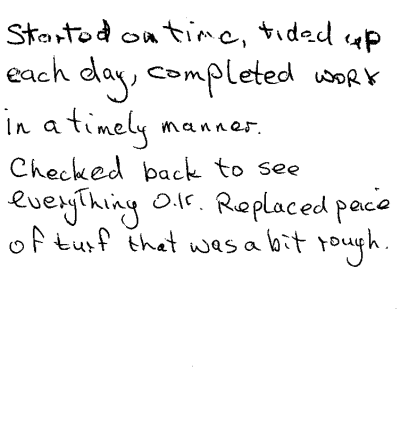 Started on time, tided up
each day, completed work
in a timely manner.
Checked back to see
everything O.K. Replaced peice
of turf that was a bit rough.